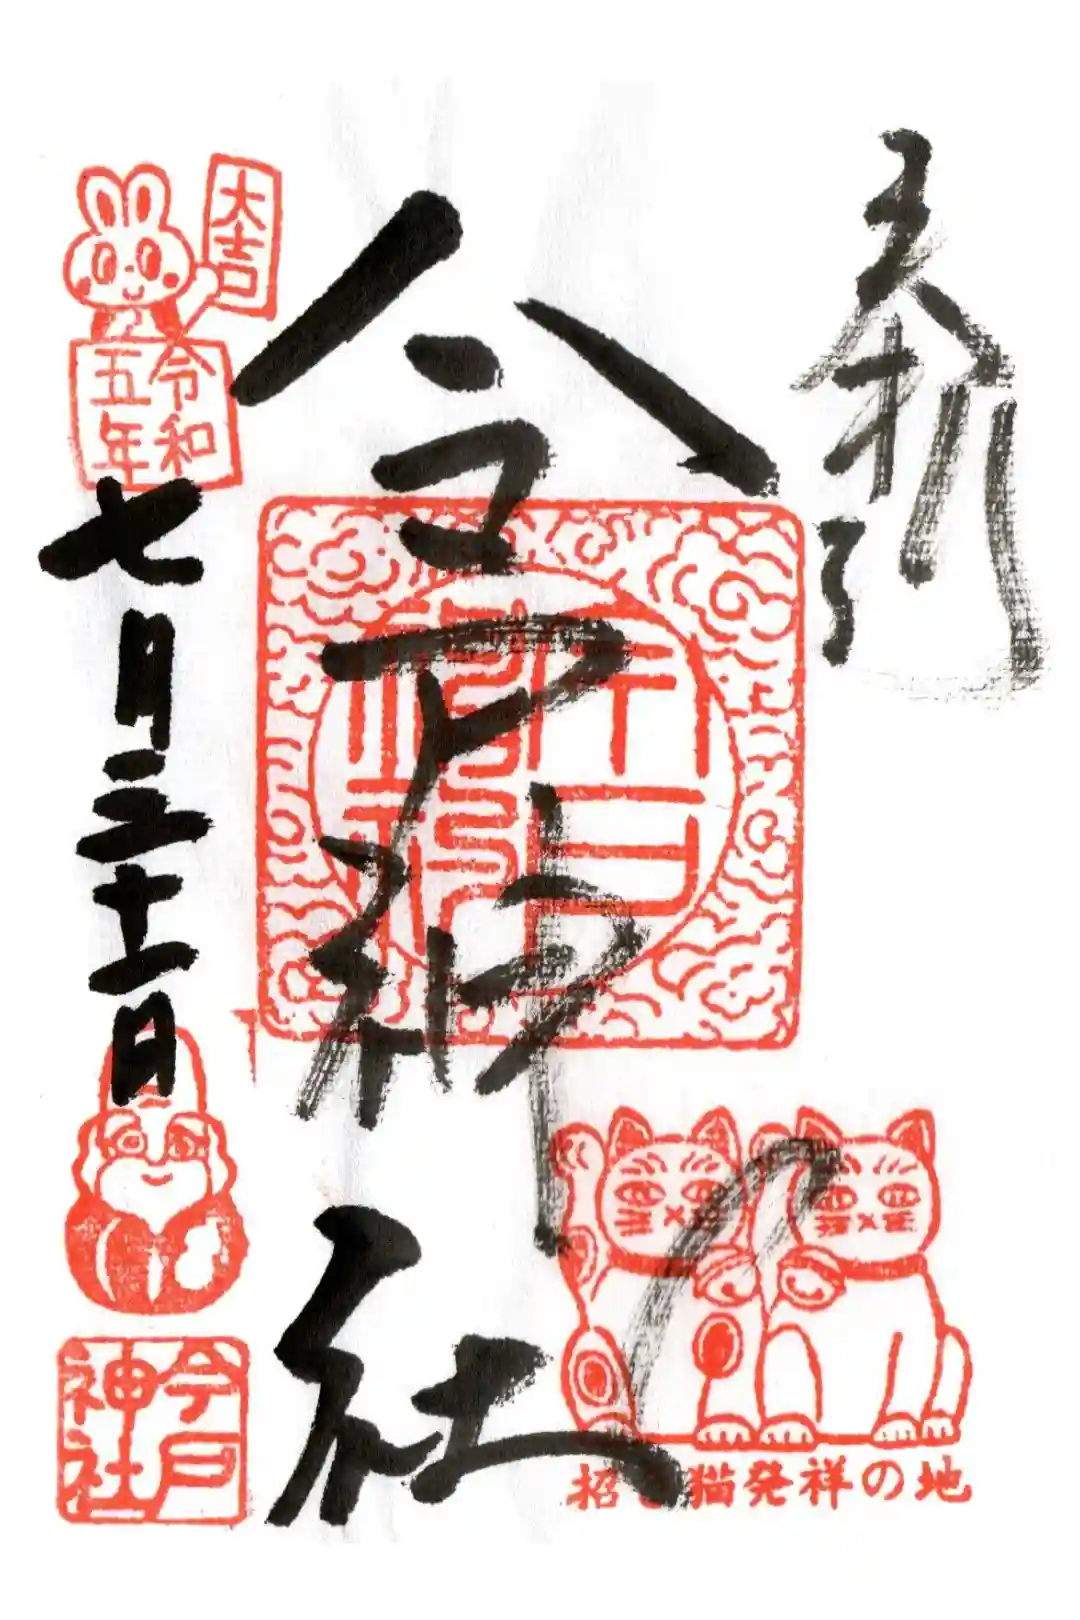 奉拝
今戸神社
大吉
令和
五年
七月三十日
今戸
神社
招き猫発祥の地